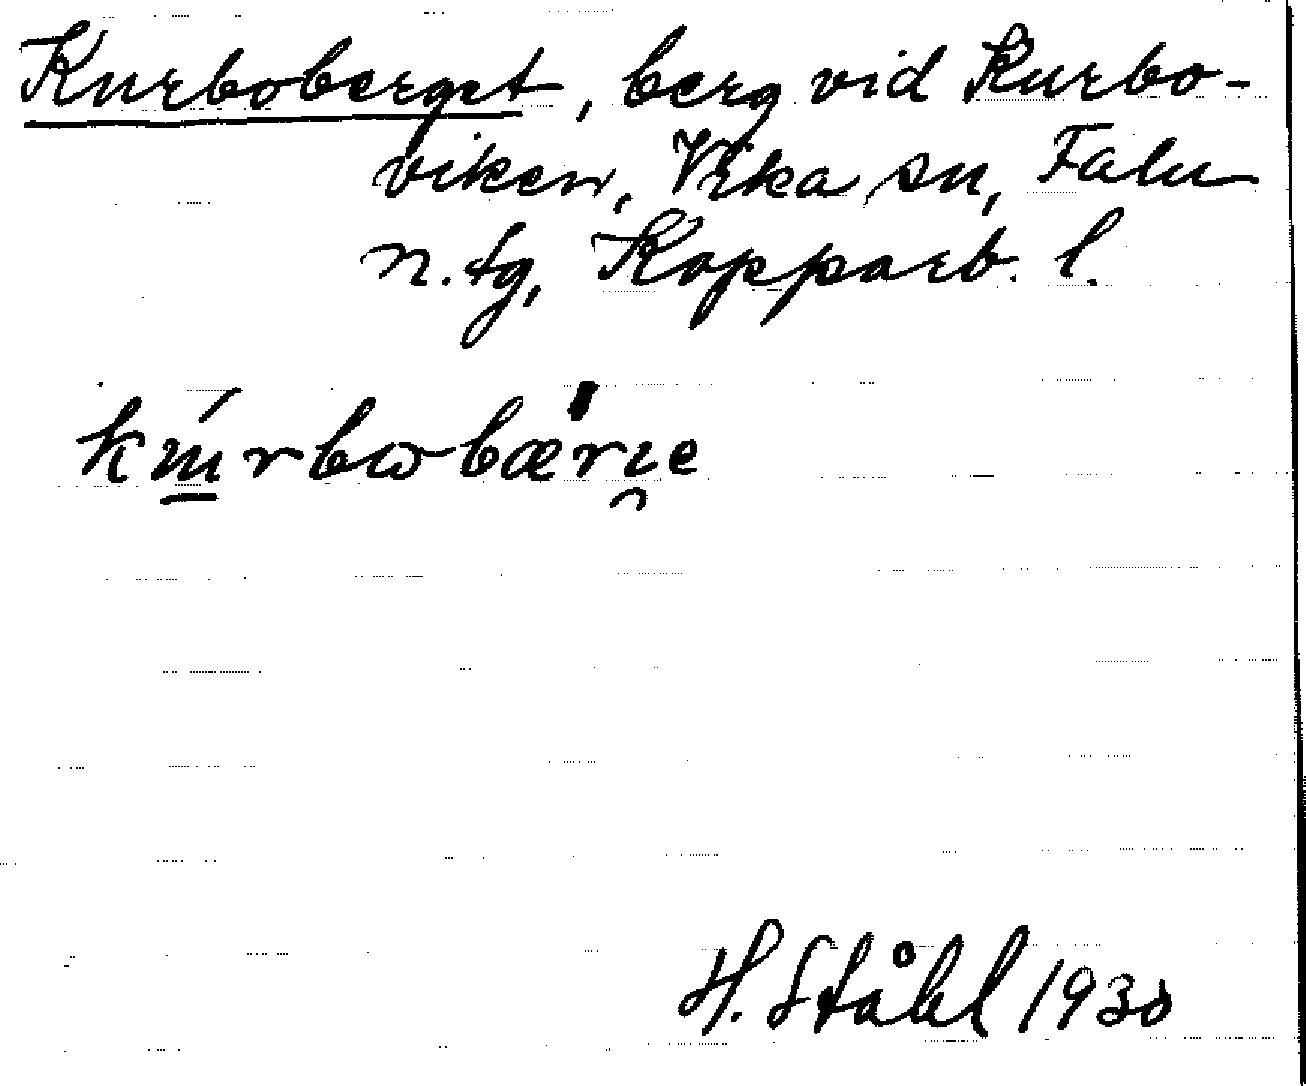 Kurboberget, berg vid Kurbo-
viken, Vika sn, Falu
n. tg, Kopparb. l.
H. Ståhl 1930